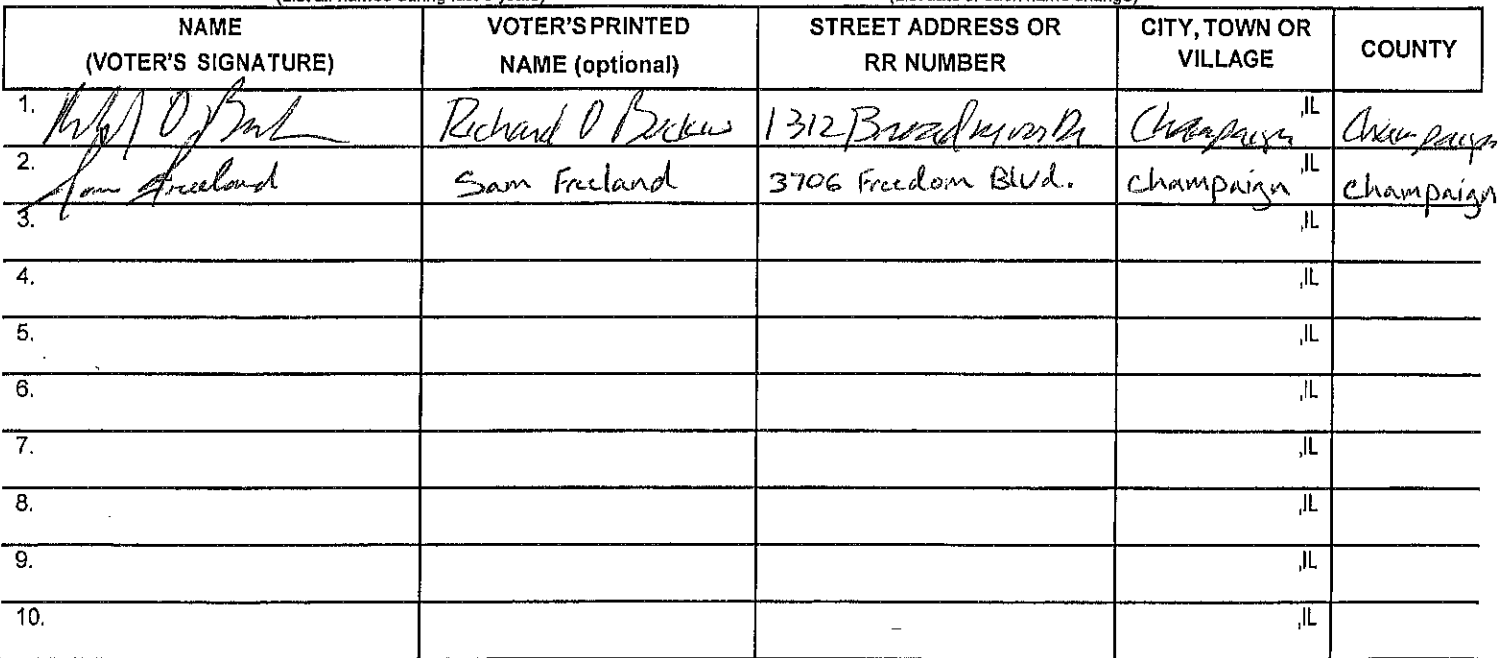 NAME (VOTER'S SIGNATURE) VOTER'S PRINTED NAME (optional) STREET ADDRESS OR RR NUMBER CITY, TOWN OR VILLAGE COUNTY
1. Richard O 1312 Champaign ,IL Champaign
2. Sam Freeland Sam Freeland 3706 Freedom Blvd. Champaign ,IL Champaign
3. ,IL
4. ,IL
5. ,IL
6. ,IL
7. ,IL
8. ,IL
9. ,IL
10. ,IL